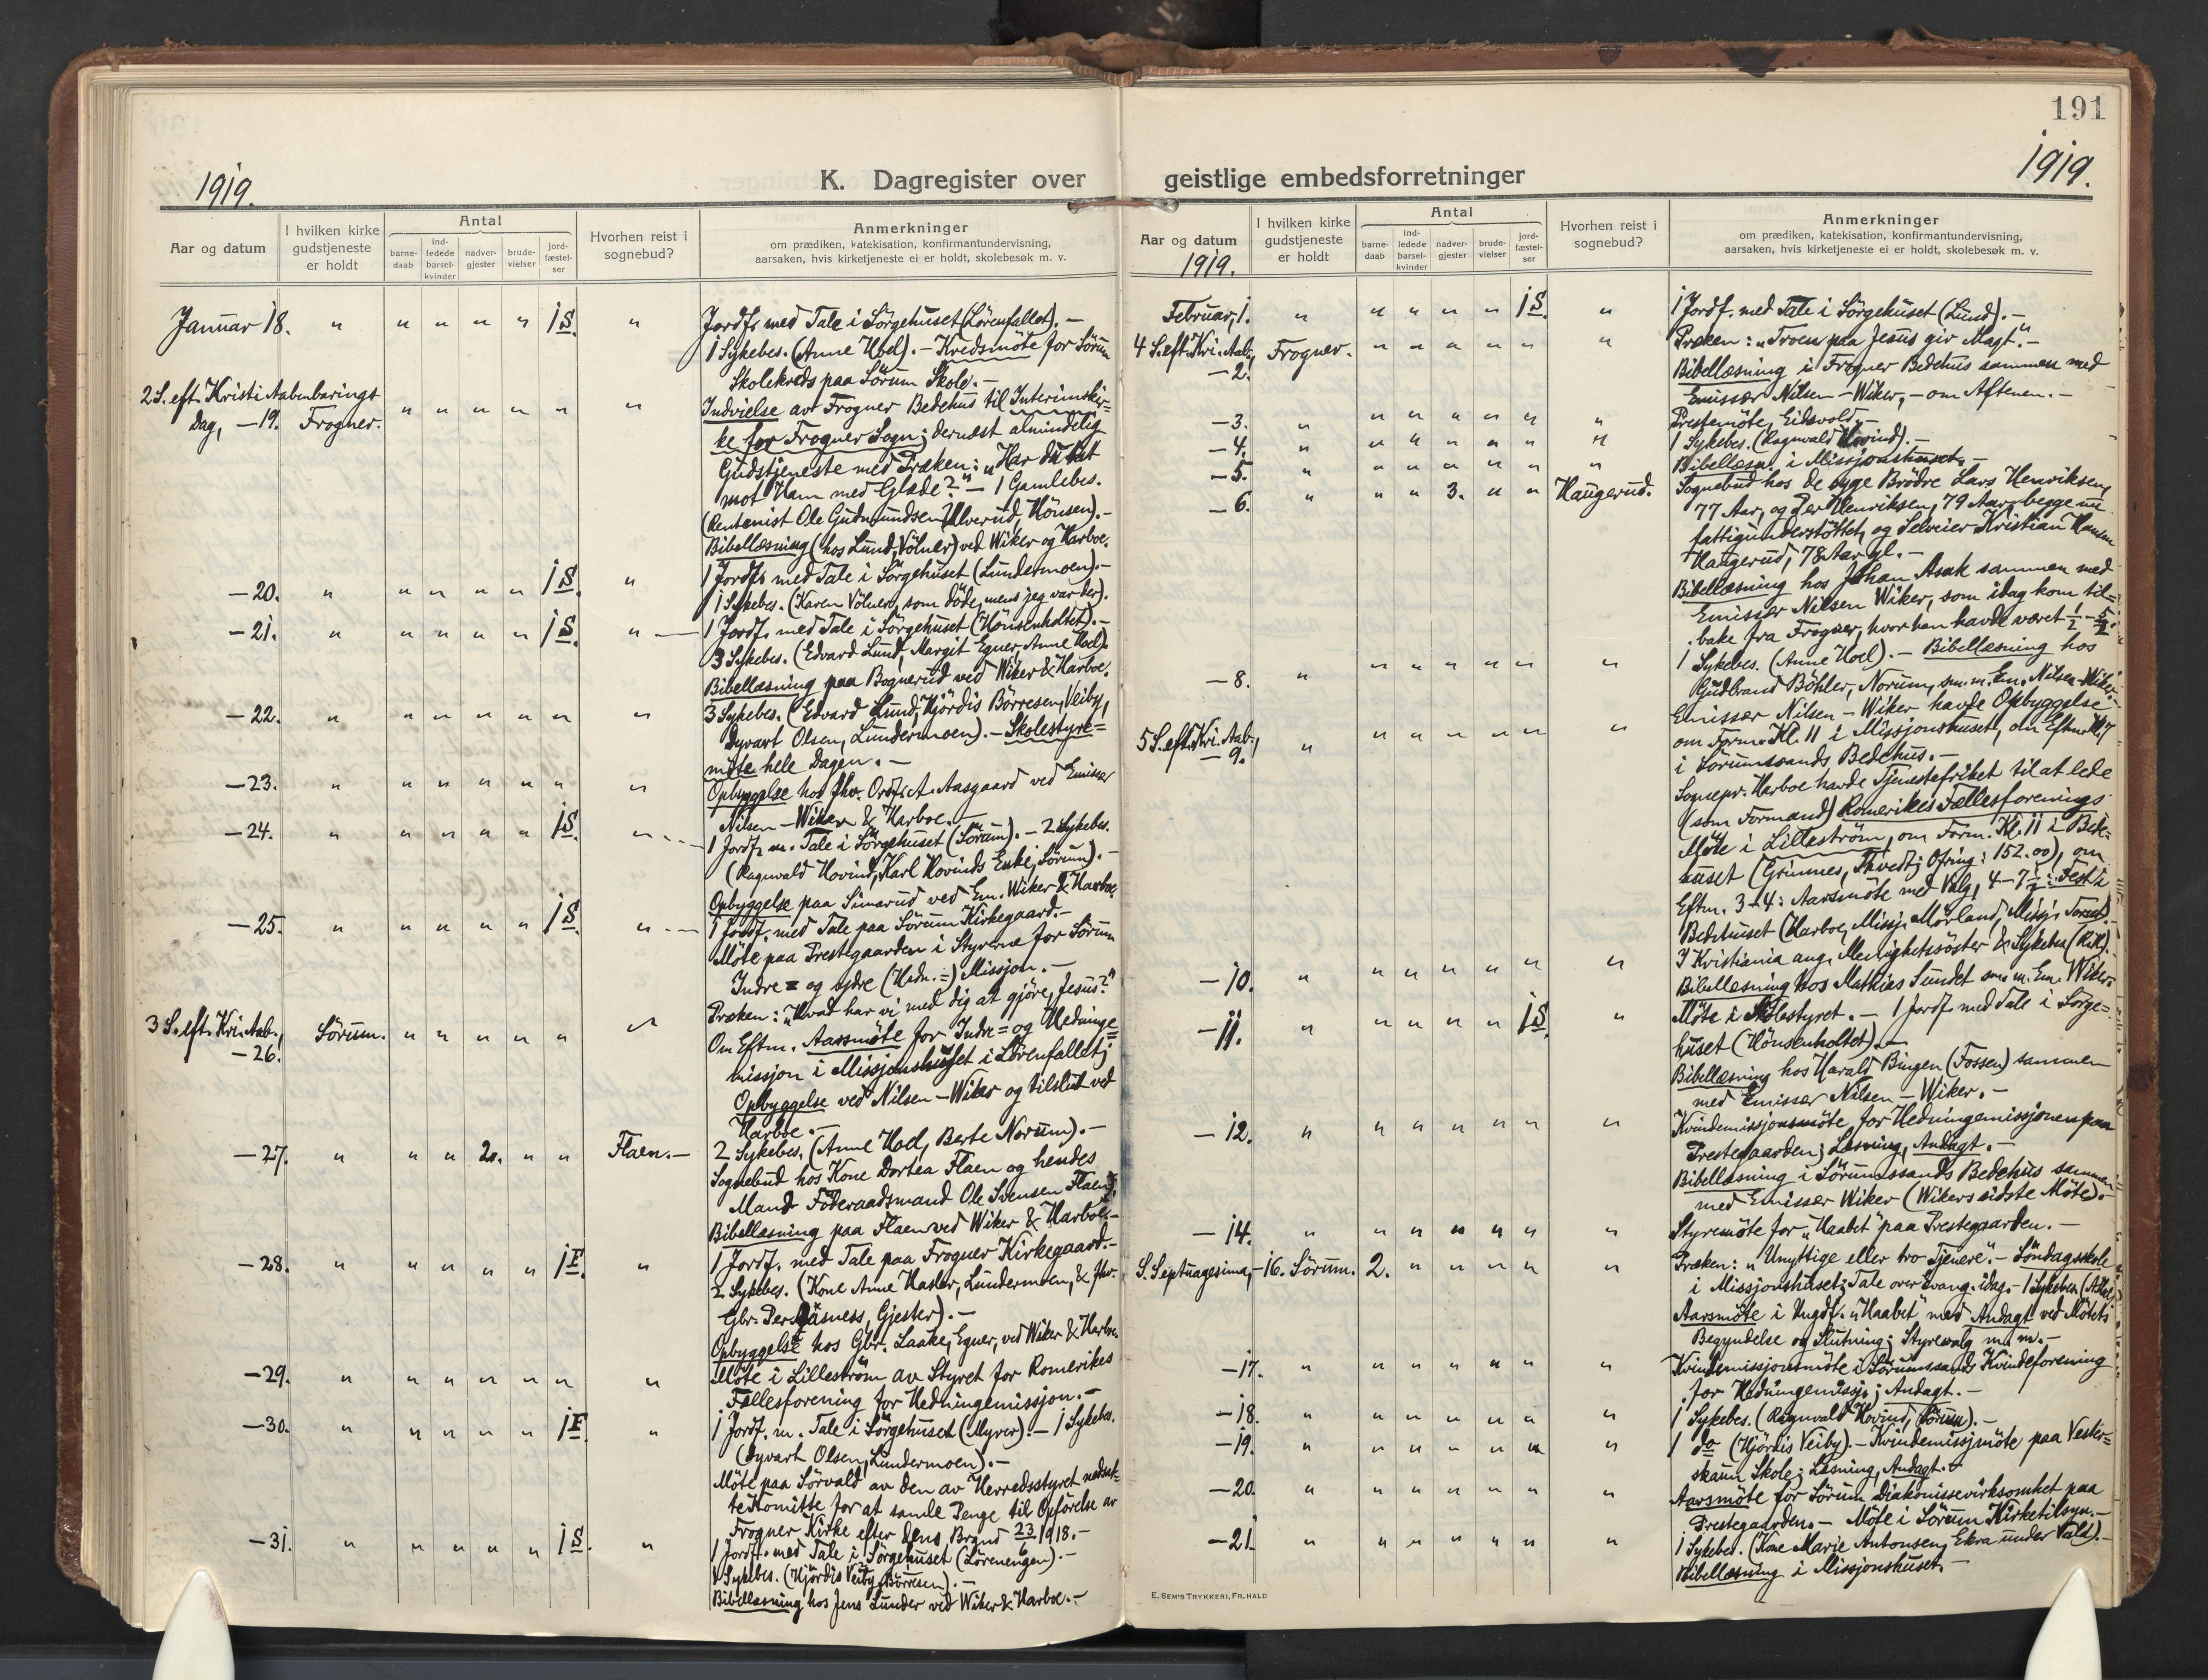 191
1919.
K. Dagregister over
Aar og datum
I hvilken kirke gudstjeneste er holdt
Antal
barne-daab
ind-ledede barsel-kvinder
nadver-gjester
brude-vielser
jord-fæstel-ser
Hvorhen reist i sognebud?
Anmerkninger
om prædiken, katekisation, konfirmantundervisning,
aarsaken, hvis kirketjeneste ei er holdt, skolebesøk m. v.
Januar 18. " " " " " 1 S. " Jordf. med Tale i Sörgehuset (Lörenfallet). —
1 Sykebes. (Anne Hoel). — Kredsmöte for Sörum
Skolekreds paa Sörum Skole. —
2 S. eft. Kristi Aabenbarings
Dag, — 19. Frogner. " " " " " " Indvielse av Frogner Bedehus til Interimskir=
ke for Frogner Sogn; dernæst almindelig
Gudstjeneste med Præken: "Har du tat
mot Ham med Glæde?" — 1 Gamlebes.
(Rentenist Ole Gudmundsen Ulverud, Hönsen). —
Bibellæsning (hos Lund, Völner) ved Wiker og Harboe.
— 20. " " " " " 1 S. " 1 Jordf. med Tale i Sörgehuset (Lundermoen). —
1 Sykebes. (Karen Völner, som döde, mens jeg var der).
— 21. " " " " " 1 S. " — 1 Jordf. med Tale i Sörgehuset (Hönsenholtet). —
3 Sykebes. (Edvard Lund, Margit Egner, Anne Hoel).
Bibellæsning paa Bognerud ved Wiker & Harboe.
— 22. " " " " " " " 3 Sykebes. (Edvard Lund, Hjördis Börresen, Veiby,
Syvart Olsen, Lundermoen). — Skolestyre=
möte hele Dagen. —
— 23. " " " " " " " Opbyggelse hos fhv. Ordf. A. Aasgaard ved Emissær
Nilsen — Wiker & Harboe. —
— 24. " " " " " 1 S. " 1 Jordf. m. Tale i Sörgehuset (Sörum). — 2 Sykebes.
(Ragnvald Hovind, Karl Hovinds Enke, Sörum). —
Opbyggelse paa Simarud ved Em. Wiker & Harboe.
— 25. " " " " " 1 S. " 1 Jordf. med Tale paa Sörum Kirkegaard. —
Möte paa Prestegaarden i Styrerne for Sörum
Indre = og ydre (Hedn. =) Missjon. —
3 S. eft. Kri. Aab.,
— 26. Sörum. " " " " " " Præken: "Hvad har vi med dig at gjöre, Jesus?"
Om Eftm. Aarsmöte for Indre = og Hedninge=
missjon i Missjonshuset i Lörenfallet;
Opbyggelse ved Nilsen — Wiker og tilslut ved
Harboe. —
— 27. " " " 2. " " Flaen. — 2 Sykebes. (Anne Hoel, Berte Norum). —
Sognebud hos Kone Dortea Flaen og hendes
Mand Föderaadsmand Ole Svensen Flaen.
Bibellæsning paa Flaen ved Wiker & Harboe. —
— 28. " " " " " 1 F. " 1 Jordf. med Tale paa Frogner Kirkegaard. —
2 Sykebes. (Kone Anne Hasler, Lundermoen, & fhv.
Gbr. Per Aasness, Gjester). —
Opbyggelse hos Gbr. Laake, Egner, ved Wiker & Harboe
— 29. " " " " " " " Möte i Lilleström av Styret for Romerikes
Fællesforening for Hedningemissjon. —
— 30. " " " " " 1 F. " 1 Jordf. m. Tale i Sörgehuset (Myrer). — 1 Sykebes.
(Syvart Olsen, Lundermoen). —
Möte paa Sörvald av den av Herredsstyret nedsat=
te Komitte for at samle Penge til Opförelse av
Frogner Kirke efter dens Brand 23/6 1918. —
— 31. " " " " " 1 S. " 1 Jordf. med Tale i Sörgehuset (Lörenengen). —
1 Sykebes. (Hjördis Veiby Börresen). —
Bibellæsning hos Jens Lunder ved Wiker & Harboe. —
geistlige embedsforretninger
1919.
Aar og datum
1919.
I hvilken kirke gudstjeneste er holdt
Antal
barne-daab
ind-ledede barsel-kvinder
nadver-gjester
brude-vielser
jord-fæstel-ser
Hvorhen reist i sognebud?
Anmerkninger
om prædiken, katekisation, konfirmantundervisning,
aarsaken, hvis kirketjeneste ei er holdt, skolebesøk m. v.
Februar, 1. " " " " " 1 S. " 1 Jordf. med Tale i Sörgehuset (Lund). —
4 S. eft. Kri. Aab.,
— 2. Frogner. " " " " " " Præken: "Troen paa Jesus gir Magt." —
Bibellæsning i Frogner Bedehus sammen med
Emissær Nilsen — Wiker, — om Aftenen. —
— 3. " " " " " " " Prestemöte, Eidsvold. —
— 4. " " " " " " " 1 Sykebes. (Ragnvald Hovind). —
— 5. " " " " " " " Bibellæsn. i Missjonshuset. —
— 6. " " " 3. " " Haugerud. Sognebud hos de syge Brödre Lars Henriksen,
77 Aar, og Per Henriksen, 79 Aar, begge
fattigunderstöttet, og Selveier Kristian Hansen
Haugerud, 78 Aar gl. —
Bibellæsning hos Johan Asak sammen med
Emissær Nilsen Wiker, som idag kom til=
bake fra Frogner, hvor han havde været 1/2 — 5/2.
— 8. " " " " " " " 1 Sykebes. (Anne Hoel). — Bibellæsning hos
Gudbrand Böhler, Norum, sm. m. Em. Nilsen-Wiker.
5 S. eft. Kri. Aab.,
— 9. " " " " " " " Emissær Nilsen — Wiker havde Opbyggelse
om Form. Kl. 11 i Missjonshuset, om Eftm. Kl. 7
i Sörumssands Bedehus. —
Sognepr. Harboe havde Tjenestefrihet til at lede
(som Formand) Romerikes Fællesforenings
Möte i Lilleström, om Form. Kl. 11 i Bede=
huset (Grimnes, Ofring: 152.00), om
Eftm. 3—4: Aarsmöte med Valg, 4—7 1/2: Fest i
Bedehuset (Harboe, Missj. Mörland, Missj.
— 10. " " " " " " " I Kristiania ang. Menighetssöster & Sykebes.
Bibellæsning hos Mathias Sundet sm. m. Em. Wiker.
— 11. " " " " " 1 S. " Möte i Skolestyret. — 1 Jordf. med Tale i Sörge=
huset (Hönsenholtet). —
Bibellæsning hos Harald Bingen (Fossen) sammen
med Emissær Nilsen — Wiker. —
— 12. " " " " " " " Kvindemissjonsmöte for Hedningemissjonen paa
Prestegaarden; Læsning, Andagt. —
Bibellæsning i Sörumssands Bedehus sammen
med Emissær Wiker (Wikers sidste Möte). —
— 14. " " " " " " " Styremöte for "Haabet" paa Prestegaarden. —
S. Septuagesima, — 16. Sörum. 2. " " " " " Præken: "Unyttige eller tro Tjenere". — Söndagsskole
i Missjonshuset; Tale over Evang. idag. — 1 Sykebes.
Aarsmöte i Ungdf. "Haabet" med Andagt ved Mötets
Begyndelse og Slutning; Styrevalg m. m. —
— 17. " " " " " " " Kvindemissjonsmöte i Sörumssands Kvindeforening
for Hedningemissj.; Andagt. —
— 18. " " " " " " " 1 Sykebes. (Ragnvald Hovind, Sörum). —
— 19. " " " " " " " 1 do (Hjördis Veiby). — Kvindemissjmöte paa Vester=
skaun Skole; Læsning, Andagt. —
— 20. " " " " " " " Aarsmöte for Sörum Diakonissevirksomhet paa
Prestegaarden. — Möte i Sörum Kirketilsyn. —
— 21. " " " " " " " 1 Sykebes. (Kone Marie Antonsen, Ekra under Vald). —
Bibellæsning i Missjonshuset. —
E. SEM'S TRYKKERI, FR.HALD